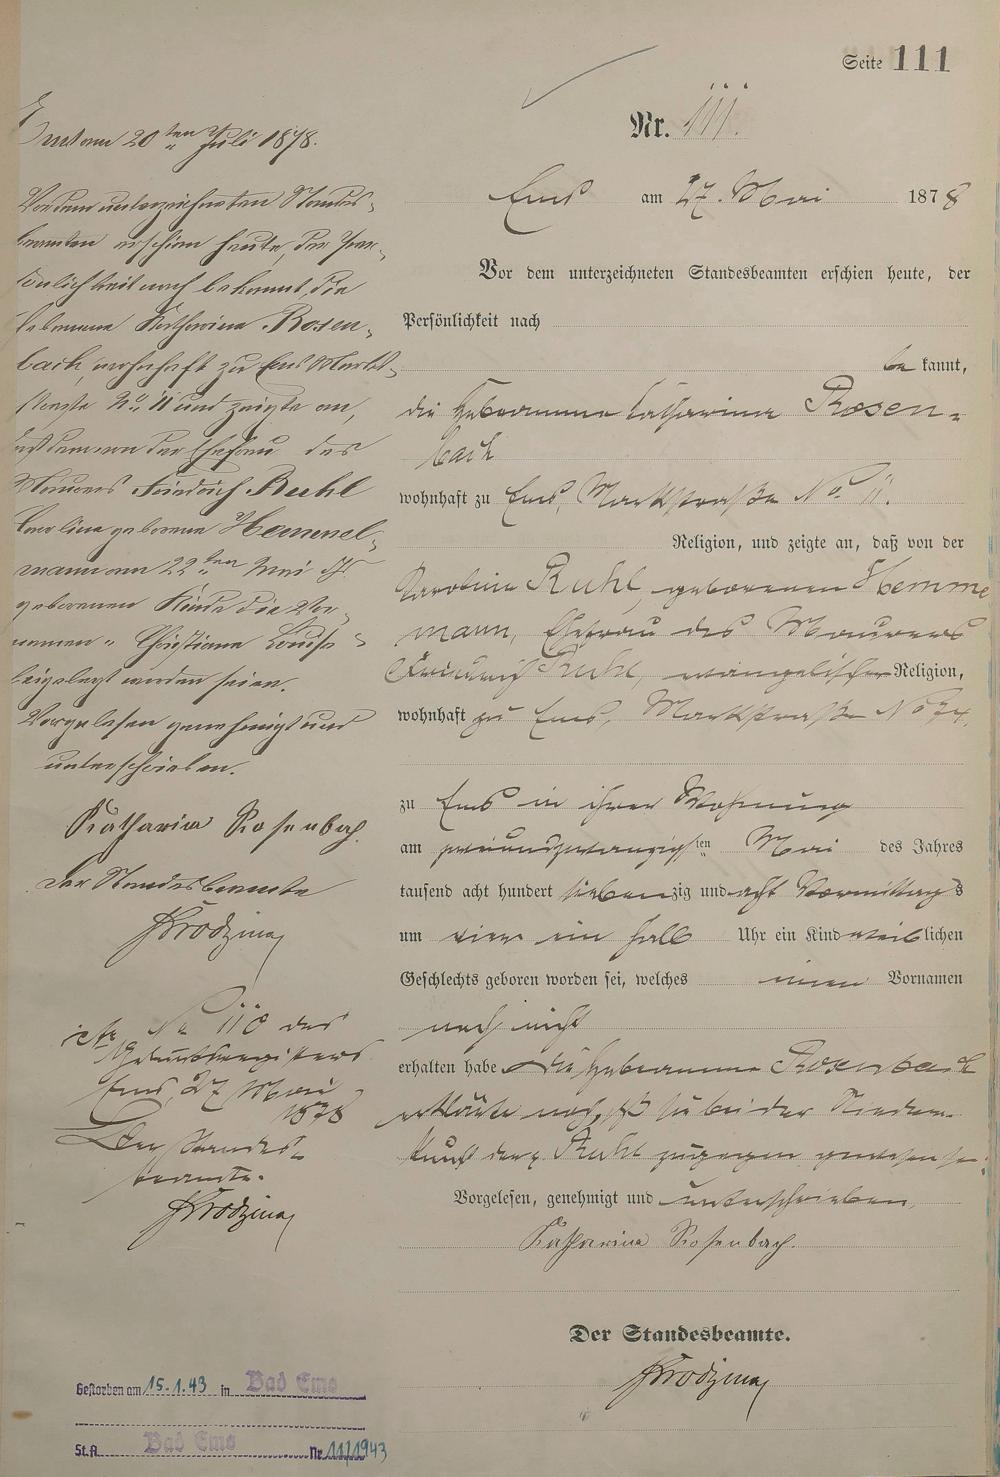 Seite 111
Nr. 111.
Ems am 27. Mai 1878
Vor dem unterzeichneten Standesbeamten erschien heute, der
Persönlichkeit nach
be kannt,
die Hebamme Catharina Rosen-
bach
wohnhaft zu Ems, Marktstraße No. 11.
Religion, und zeigte an, daß von der
Karolina Ruhl, geborenen Hemme
mann, Ehefrau des Maurers
Friedrich Ruhl, evangelischer Religion,
wohnhaft zu Ems, Marktstraße No 74,
zu Ems in ihrer Wohnung
am zweiundzwanzigsten Mai des Jahres
tausend acht hundert siebenzig und acht Vormittags
um vier ein halb Uhr ein Kind weiblichen
Geschlechts geboren worden sei, welches einen Vornamen
noch nicht
erhalten habe. Die Hebamme Rosenbach
erklärte noch, daß sie bei der Nieder-
kunft der Ruhl zugegen gewesen sei.
Vorgelesen, genehmigt und unterschrieben.
Katharina Rosenbach.
Der Standesbeamte.
Ems am 20ten Juli 1878.
Vor dem unterzeichneten Standes-
beamten erschien heute, der Per-
sönlichkeit nach bekannt, die
Hebamme Katharina Rosen-
bach, wohnhaft zu Ems Markt-
straße No. 11 und zeigte an,
daß dem von der Ehefrau des
Maurers Friedrich Ruhl
Carolina geborene Hemmel-
mann am 22ten Mai
geborenen Kinde die Vor-
namen " Christiane Louise "
beigelegt worden seien.
Vorgelesen genehmigt und
unterschrieben.
Katharina Rosenbach.
Der Standesbeamte
No 110 des
Geburtsregisters
Ems, 27 Mai
1878
Der Standes-
beamte.
Gestorben am 15.1.43 in Bad Ems
St.A. Bad Ems Nr. 11/1943